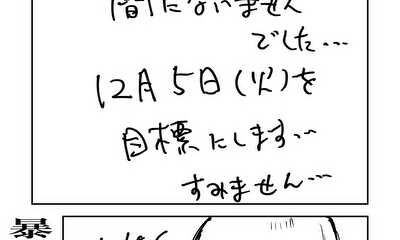 間に合いません
でした…
12月5日(火)を
目標にします…
すみません…
暴